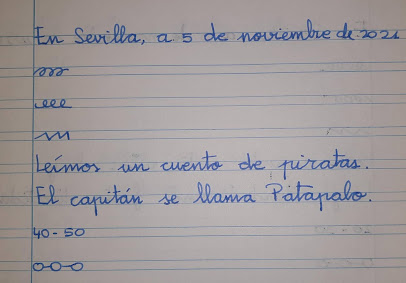 En Sevilla, a 5 de noviembre de 2021
eee
Leímos un cuento de piratas.
El capitán se llama Patapalo.
40-50
o-o-o